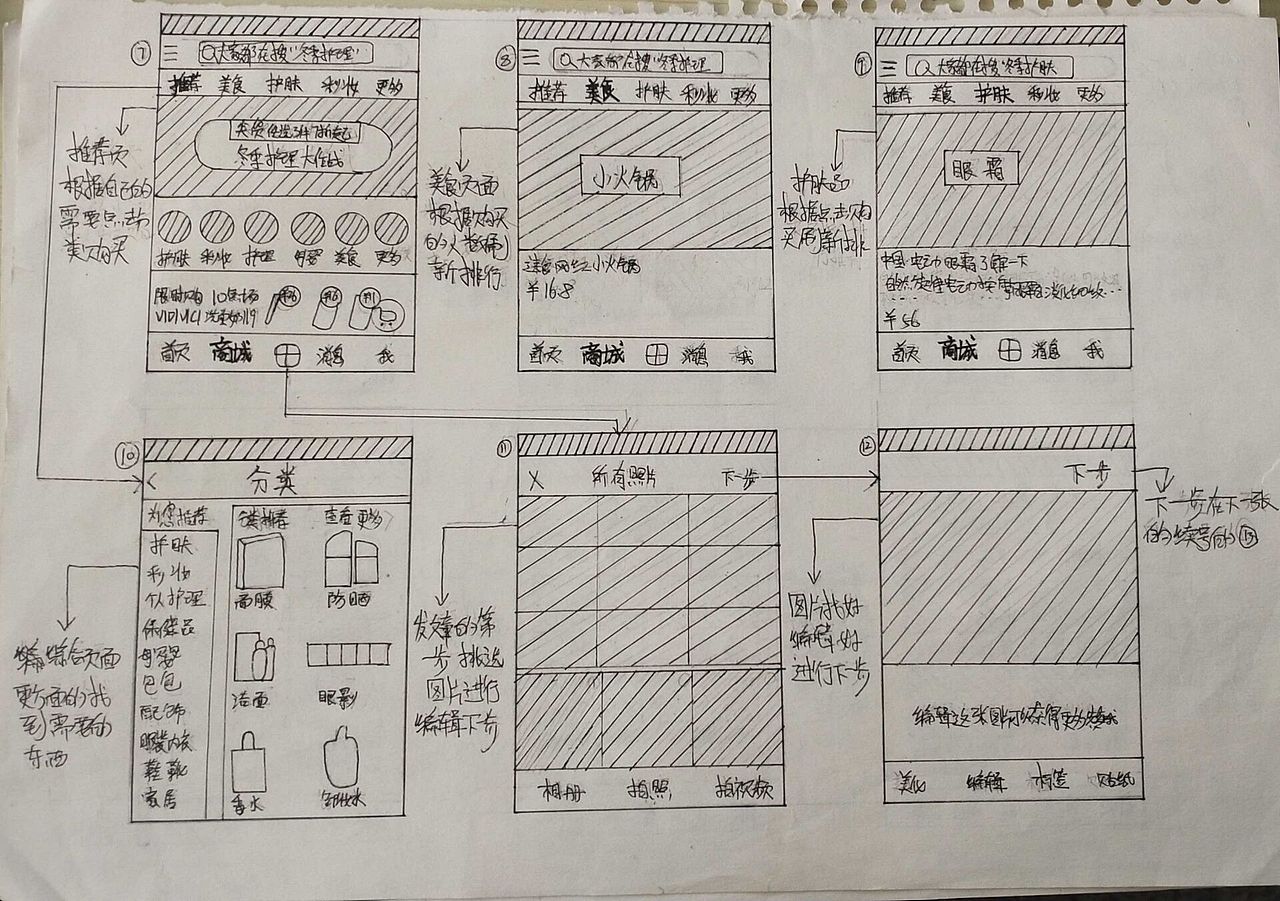 ⑦
三 大家都在搜"冬季护理"
推荐 美食 护肤 彩妆 更多
冬季护理大作战
护肤 彩妆 护理 母婴 美食 更多
限时购 10点场
VIDIVICI
首页 商城 消息 我
推荐页
根据自己的
需要点击
类购买
⑧
大家都在搜"冬季护理
推荐 美食 护肤 彩妆 更多
小火锅
速食网红小火锅
¥16.8
首页 商城 消息 我
美食页面
根据购买
新排行
⑨
大家都在搜"冬季护肤
推荐 美食 护肤 彩妆 更多
眼霜
中国电动眼霜了解一下
¥56
首页 商城 消息 我
护肤品
根据点击购
买
⑩
< 分类
为您推荐
护肤
彩妆
个护理
保健品
母婴
包包
配饰
服装内衣
鞋靴
家居
分类推荐 查看更多>
面膜 防晒
洁面 眼影
香水 卸妆水
综合页面
更方面的找
到需要的
东西
⑪
X 所有照片 下一步
相册 拍照 拍视频
发文章的第
一步挑选
图片进行
编辑下步
⑫
下一步
编辑这张图片
美化 编辑 标签 贴纸
图片找好
编辑好
进行下步
下一步在下一张
的续号的⑬